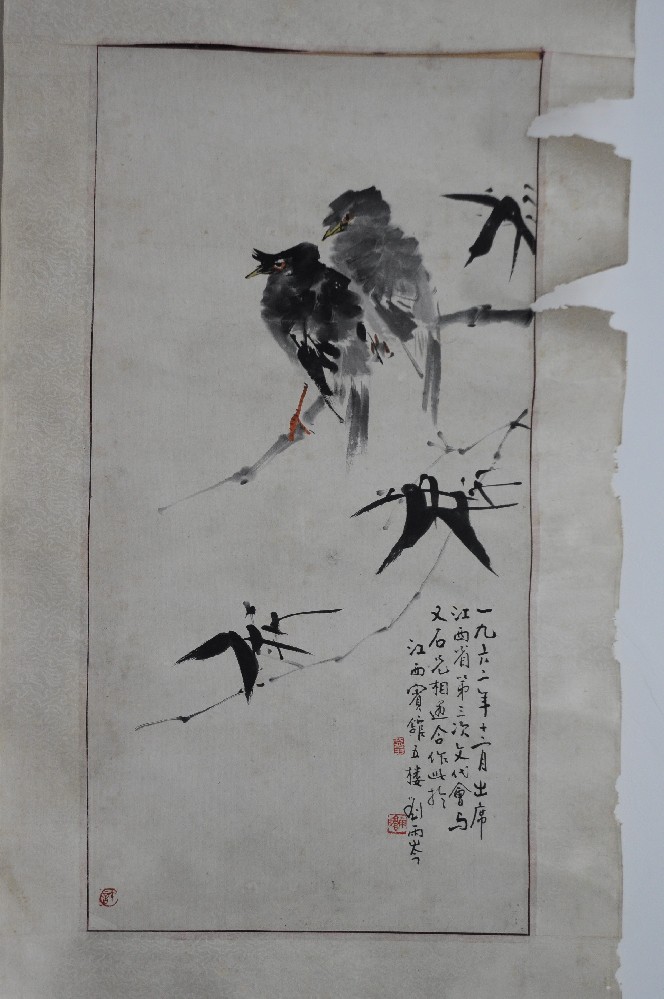 一九六二年十二月出席
江西省第三次文代會与
又石兄相遇合作此於
江西賓館五楼 劉雨岑